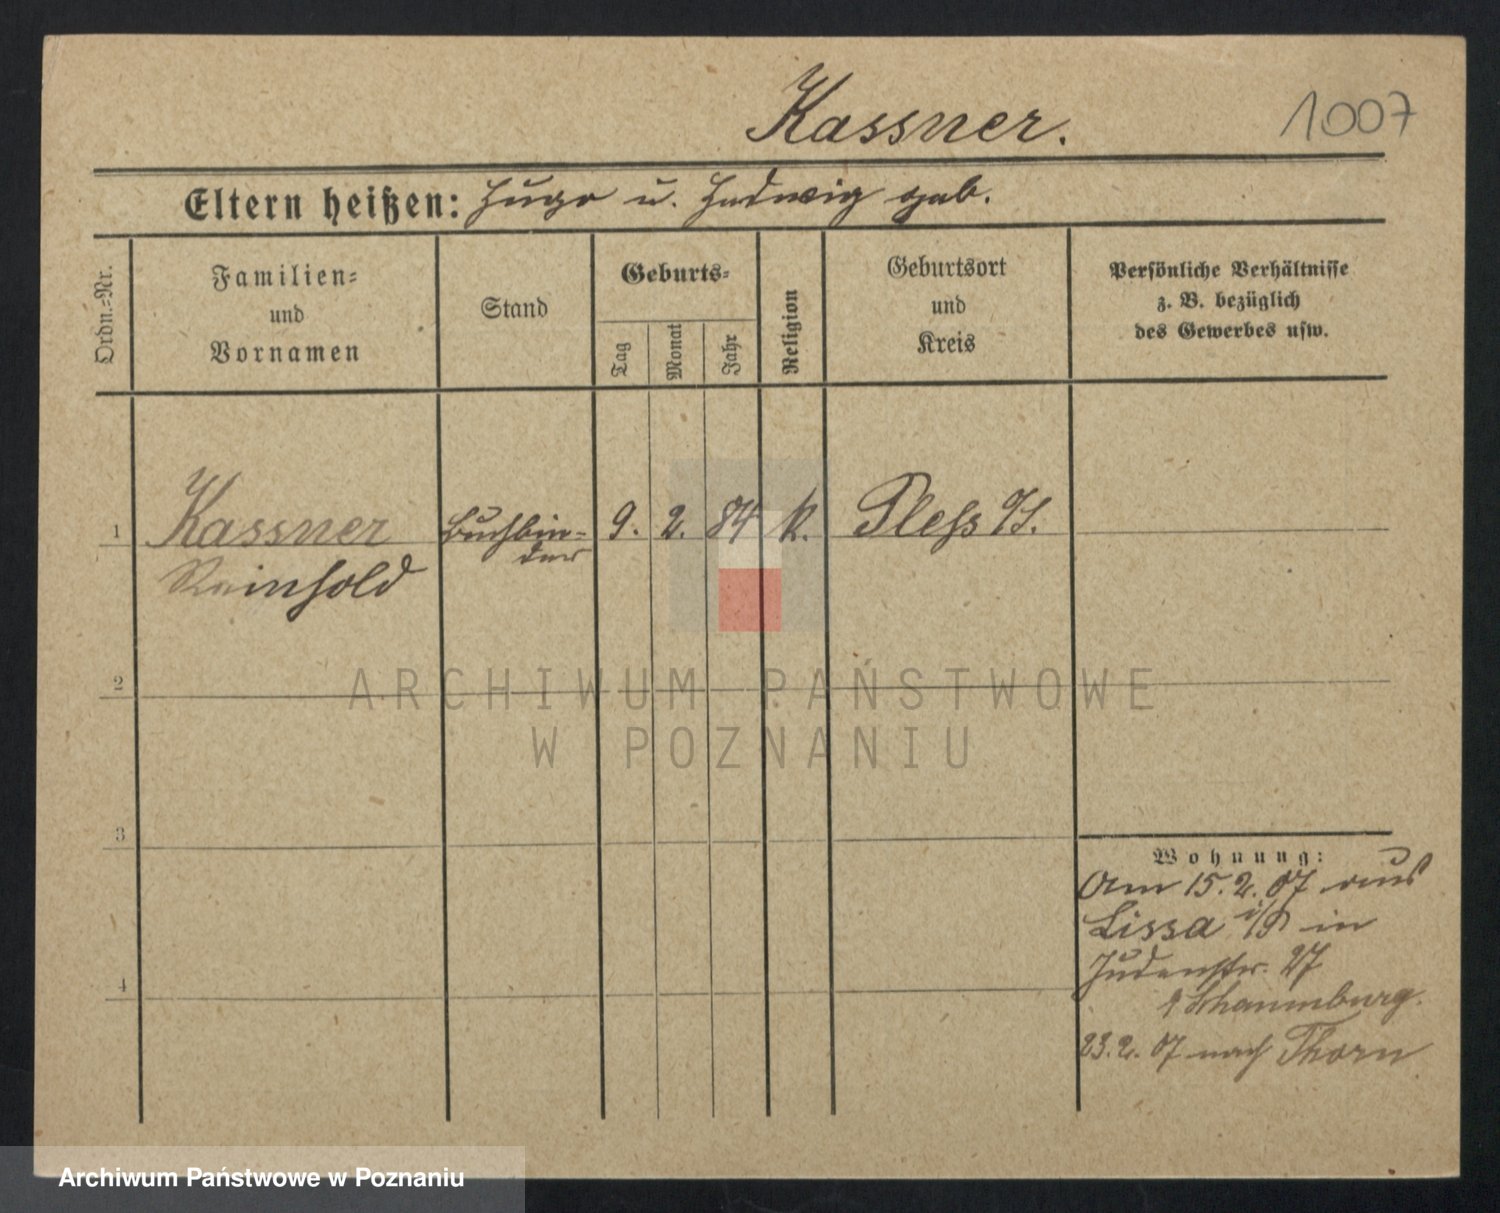 Kassner.
1007
Eltern heißen: Hugo u. Hedwig geb.
Ordn.-Nr.
Familien-
und
Vornamen
Stand
Geburts-
Tag
Monat
Jahr
Religion
Geburtsort
und
Kreis
Persönliche Verhältnisse
z. B. bezüglich
des Gewerbes usw.
1 Kassner Buchbin- 9. 2. 84 k. Pless O/S.
der
Reinhold
2
3
4
Wohnung:
Am 15.2.07 aus
Lissa i/P in
Judenstr. 27
Schaumburg.
23.2.07 nach Thorn
ARCHIWUM PAŃSTWOWE
W POZNANIU
Archiwum Państwowe w Poznaniu